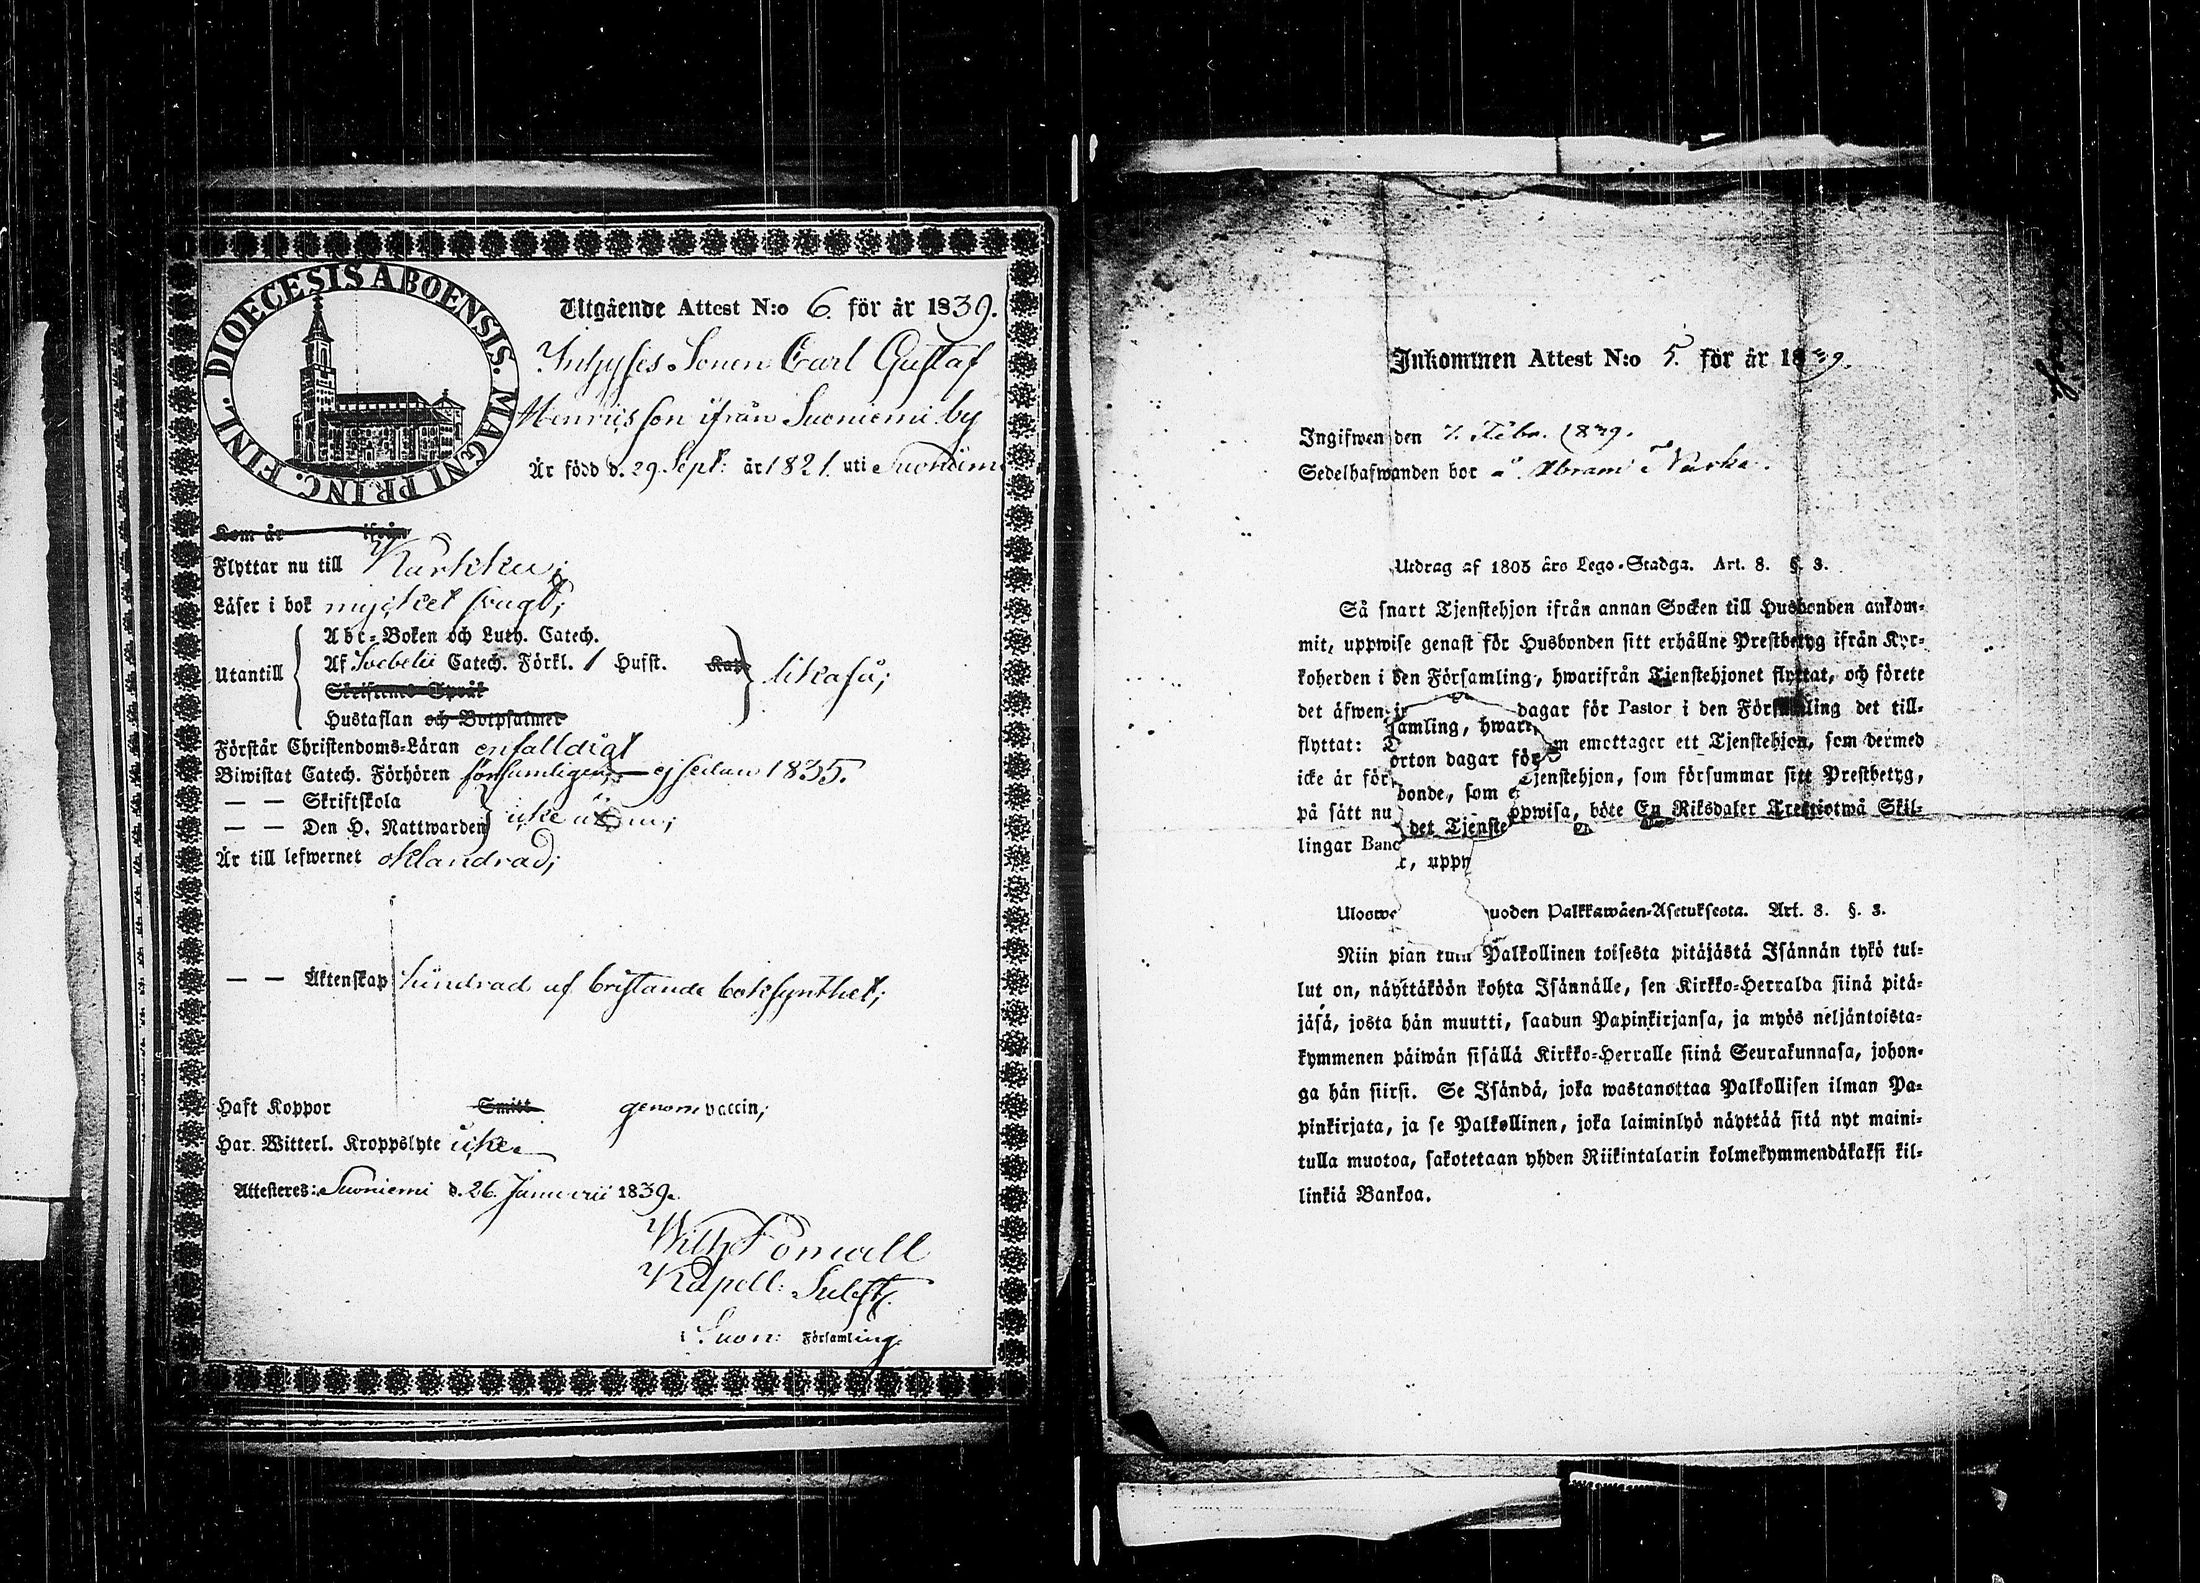 DIOECESIS ABOENSIS. MAGNI PRINC. FINL.
Utgående Attest N:o 6. för år 1839.
Inhyses Sonen Carl Gustaf
Henricsson ifrån Suoniemi by
Är född d. 29 Sept: år 1821. uti Suoniemi
Kom år ifrån
Flyttar nu till Karkku;
Läser i bok mycket svagt;
Abc-Boken och Luth. Catech.
Utantill Af Svebelii Catech. Förkl. 1 Hufst. likaså;
Skriftens Språk
Hustaflan och Botpsalmer
Förstår Christendoms-Läran enfalldigt
Biwistat Catech. Förhören församligen, ej sedan 1835.
— — Skriftskola
— — Den H. Nattwarden icke
Är till lefwernet oklandrad;
— — Äktenskap hindrad af bristande boksynthet;
Haft Koppor Smitt genom vaccin;
Har Witterl. Kroppslyte icke
Attesteres: Suoniemi d. 26. Januarii 1839.
Wilh Fonwell
Kapell: Subst.
i Suon: Församling.
Inkommen Attest N:o 5. för år 1839.
Ingifwen den 7. Febr. 1839.
Sedelhafwanden bor å
Utdrag af 1805 års Lego-Stadga. Art. 8. §. 3.
Så snart Tjenstehjon ifrån annan Socken till Husbonden ankom-
mit, uppwise genast för Husbonden sitt erhållne Prestbetyg ifrån Kyr-
koherden i den Församling, hwarifrån Tjenstehjonet flyttat, och förete
det äfwen dagar för Pastor i den Församling det till-
samling, hwari
flyttat: D m emottager ett Tjenstehjon, som dermed
orton dagar för
icke är för Tjenstehjon, som försummar sitt Prestbetyg,
bonde, som e
på sätt nu ppwisa, böte En Riksdaler Trettiotwå Skil-
det Tjenste
lingar Banc
r, uppw
Uloswe uoden Palkkawäen-Asetuksesta. Art. 8. §. 3.
Niin pian kuin Palkollinen toisesta pitäjästä Isännän tykö tul-
lut on, näyttäköön kohta Isännälle, sen Kirkko-Herralda siinä pitä-
jäsä, josta hän muutti, saadun Papinkirjansa, ja myös neljäntoista-
kymmenen päiwän sisällä Kirkko-Herralle siinä Seurakunnasa, johon-
ga hän siirsi. Se Isändä, joka wastanottaa Palkollisen ilman Pa-
pinkirjata, ja se Palkollinen, joka laiminlyö näyttää sitä nyt maini-
tulla muotoa, sakotetaan yhden Riikintalarin kolmekymmendäkaksi kil-
linkiä Bankoa.